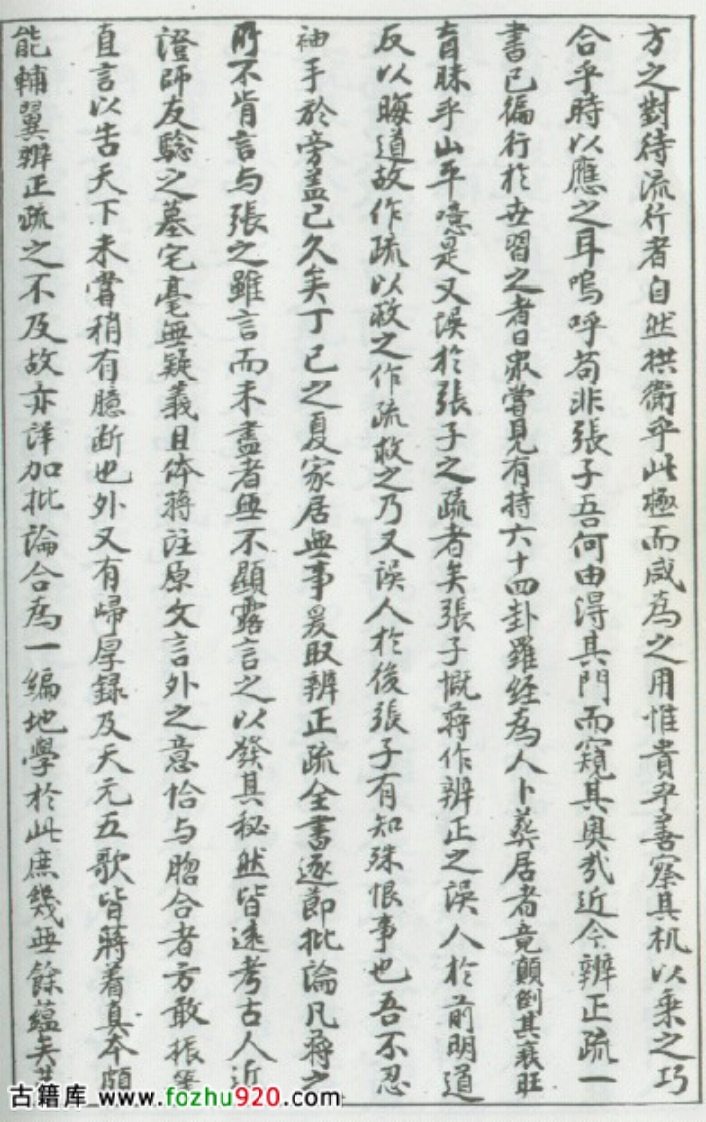 方之對待流行者自然拱衛乎此極而咸為之用惟貴乎善察其机以乘之巧
合乎時以應之耳嗚呼苟非張子吾何由淂其門而窺其奥㢤近今辨正疏一
書已徧行於世習之者日衆嘗見有持六十四卦羅經為人卜葬居者竟顛倒其衰旺
盲昧乎山平噫是又誤於張子之疏者矣張子慨蔣作辨正之誤人於前明道
反以晦道故作疏以救之作疏救之乃又誤人於後張子有知殊恨事也吾不忍
袖手於旁盖已久矣丁巳之夏家居無事爰取辨正疏全書逐節批論凡蔣之
所不肯言与張之雖言而未盡者無不顯露言之以發其秘然皆遠考古人近
澄師友騐之墓宅毫無疑義且体蔣註原文言外之意恰与脗合者方敢振筆
直言以告天下未嘗稍有臆断也外又有歸厚録及天元五歌皆蔣着真本頗
能輔翼辨正疏之不及故亦詳加批論合為一編地學於此庶幾無餘蘊矣
古籍库 www.fozhu920.com